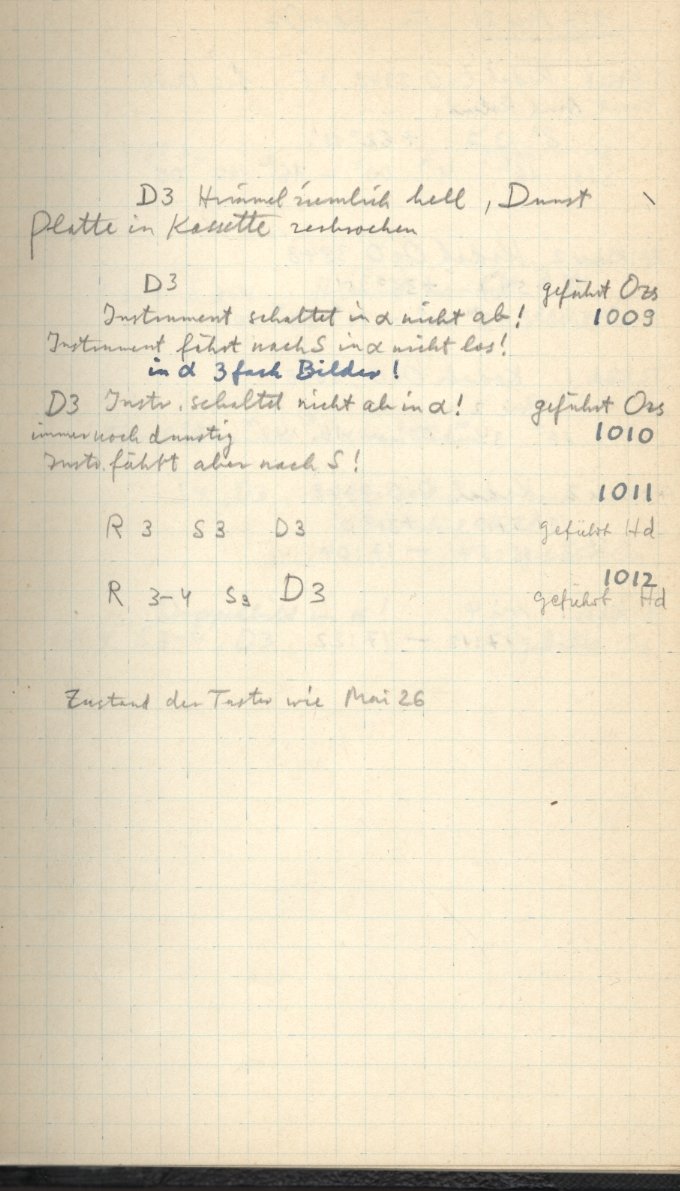 D3 Himmel ziemlich hell, Dunst
Platte in Kassette zerbrochen
D3
geführt Ozs
Instrument schaltet in α nicht ab! 1009
Instrument fährt nach S in α nicht los!
in α 3fach Bilder!
D3 Instr. schaltet nicht ab in α! geführt Ozs
immer noch dunstig 1010
Instr. fährt aber nach S!
1011
R 3 S 3 D3 geführt Hd
1012
R 3-4 S3 D3 geführt Hd
Zustand der Taster wie Mai 26